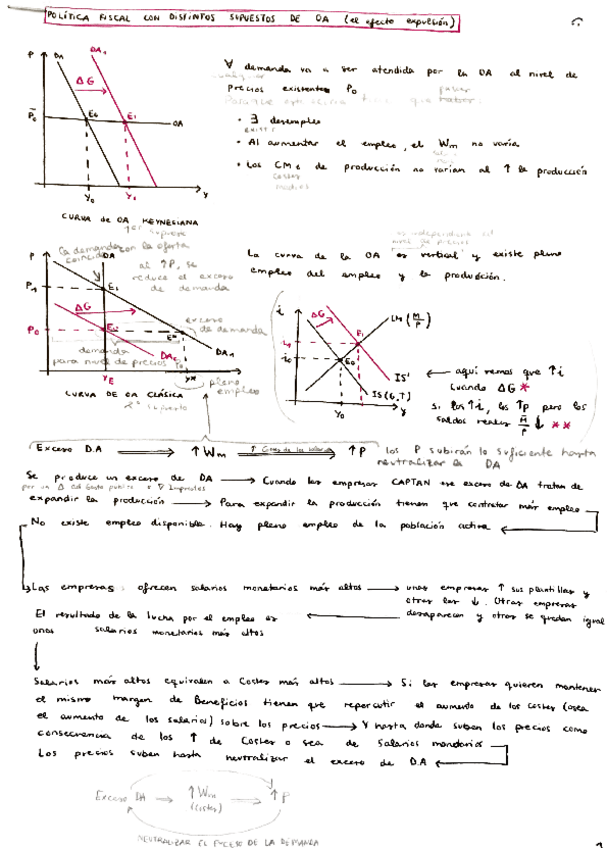 POLÍTICA FISCAL CON DISTINTOS SUPUESTOS DE OA (el efecto expulsión)
P
DA
DA₁
ΔG
P̄₀
E₀
E₁
OA
Y₀
Y₁
y
CURVA de OA KEYNESIANA
1er supuesto
∀ demanda va a ser atendida por la OA al nivel de
precios existentes P₀
• ∃ desempleo
existir
• Al aumentar el empleo, el Wm no varía
• Los CMe de producción no varían al ↑ la producción
costes
medios
P
OA
al ↑P, se
reduce el exceso
de demanda
P₁
E₁
ΔG
P₀
E₀
exceso
de demanda
demanda
para nivel de precios
DA₀
DA₁
YE
pleno
empleo
CURVA DE OA CLÁSICA
2º supuesto
es independiente del
nivel de precios
La curva de la OA es vertical y existe pleno
empleo del empleo y la producción.
i
ΔG
LM (M̄/P)
i₁
E₁
i₀
E₀
IS'
IS(G,T)
Y₀
y
← aquí vemos que ↑i
cuando ΔG *
si los ↑i, los ↑p pero los
saldos reales M̄/P ↓ **
Exceso D.A → ↑Wm ⟹ ↑P los P subirán lo suficiente hasta
neutralizar la DA
Se produce un exceso de DA → Cuando las empresas CAPTAN ese exceso de DA tratan de
por un Δ del Gasto público o ∇ Impuestos
expandir la producción → Para expandir la producción tienen que contratar más empleo
No existe empleo disponible. Hay pleno empleo de la población activa ←
Las empresas ofrecen salarios monetarios más altos → unas empresas ↑ sus plantillas y
otras las ↓. Otras empresas
desaparecen y otras se quedan igual
El resultado de la lucha por el empleo es ←
unos salarios monetarios más altos
↓
Salarios más altos equivalen a Costes más altos → Si las empresas quieren mantener
el mismo margen de Beneficios tienen que repercutir el aumento de los costes (osea
el aumento de los salarios) sobre los precios → Y hasta donde suben los precios como
consecuencia de los ↑ de Costes o sea de Salarios monetarios
Los precios suben hasta neutralizar el exceso de D.A ←
Exceso DA → ↑Wm ⟹ ↑P
(Costes)
NEUTRALIZAR EL EXCESO DE LA DEMANDA